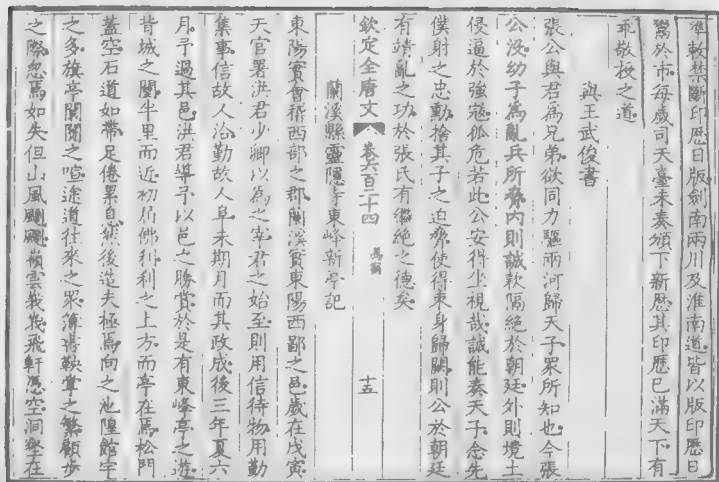 準敕禁斷印歷日版劍南兩川及淮南道皆以版印歷日
鬻於市每歲司天臺未奏頒下新歷其印歷已滿天下有
乖敬授之道
與王武俊書
張公與君爲兄弟欲同力驅兩河歸天子眾所知也今張
公沒幼子爲亂兵所脅內則誠款隔絕於朝廷外則境土
侵逼於強寇孤危若此公安得坐視哉誠能奏天子念先
僕射之忠勳捨其子之迫脅使得束身歸闕則公於朝廷
有靖亂之功於張氏有繼絕之德矣
欽定全唐文 卷六百二十四 馮宿 十五
蘭溪縣靈隱寺東峰新亭記
東陽實會稽西部之郡蘭溪實東陽西鄙之邑歲在戊寅
天官署洪君少卿以爲之宰君之始至則用信待物用勤
集事信故人洽勤故人阜未期月而其政成後三年夏六
月予過其邑洪君導予以邑之勝賞於是有東峰亭之遊
背城之闉半里而近初屆佛刹刹之上方而亭在焉松門
蓋空石道如帶足倦累息然後造夫極焉向之池隍館宇
之多旗亭闤闠之喧途道往來之眾簿書鞅掌之繁顧步
之際忽焉如失但山風颼颼嶺雲峩峩飛軒憑空洞壑在